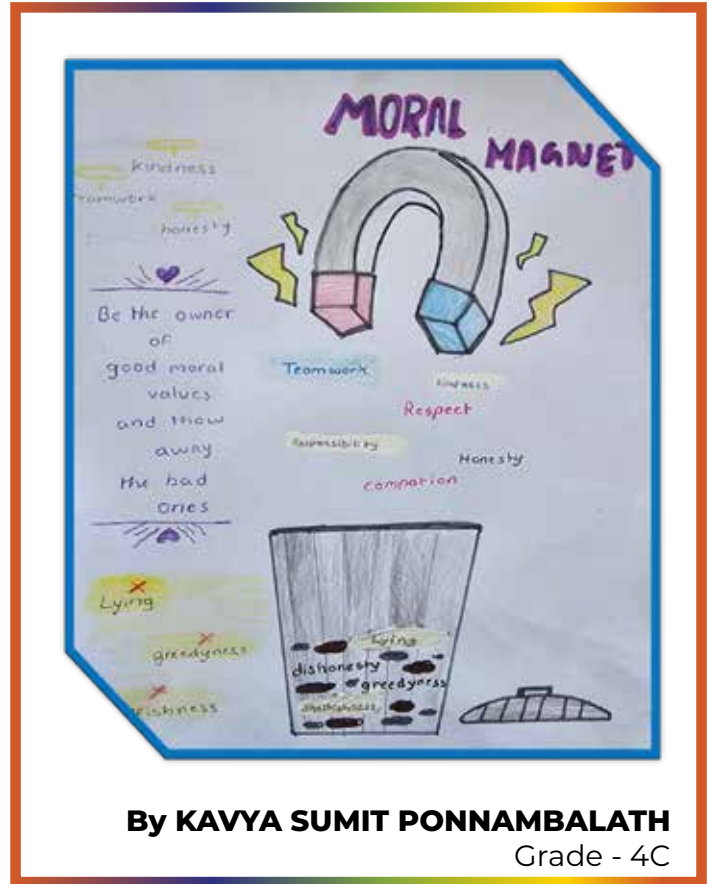 MORAL
MAGNET
kindness
Teamwork
honesty
Be the owner
of
good moral
values
and thow
away
the bad
ones
Lying
greedyness
Teamwork
kindness
Respect
Responsibility
Honesty
compation
Lying
dishonesty
greedyness
By KAVYA SUMIT PONNAMBALATH
Grade - 4C